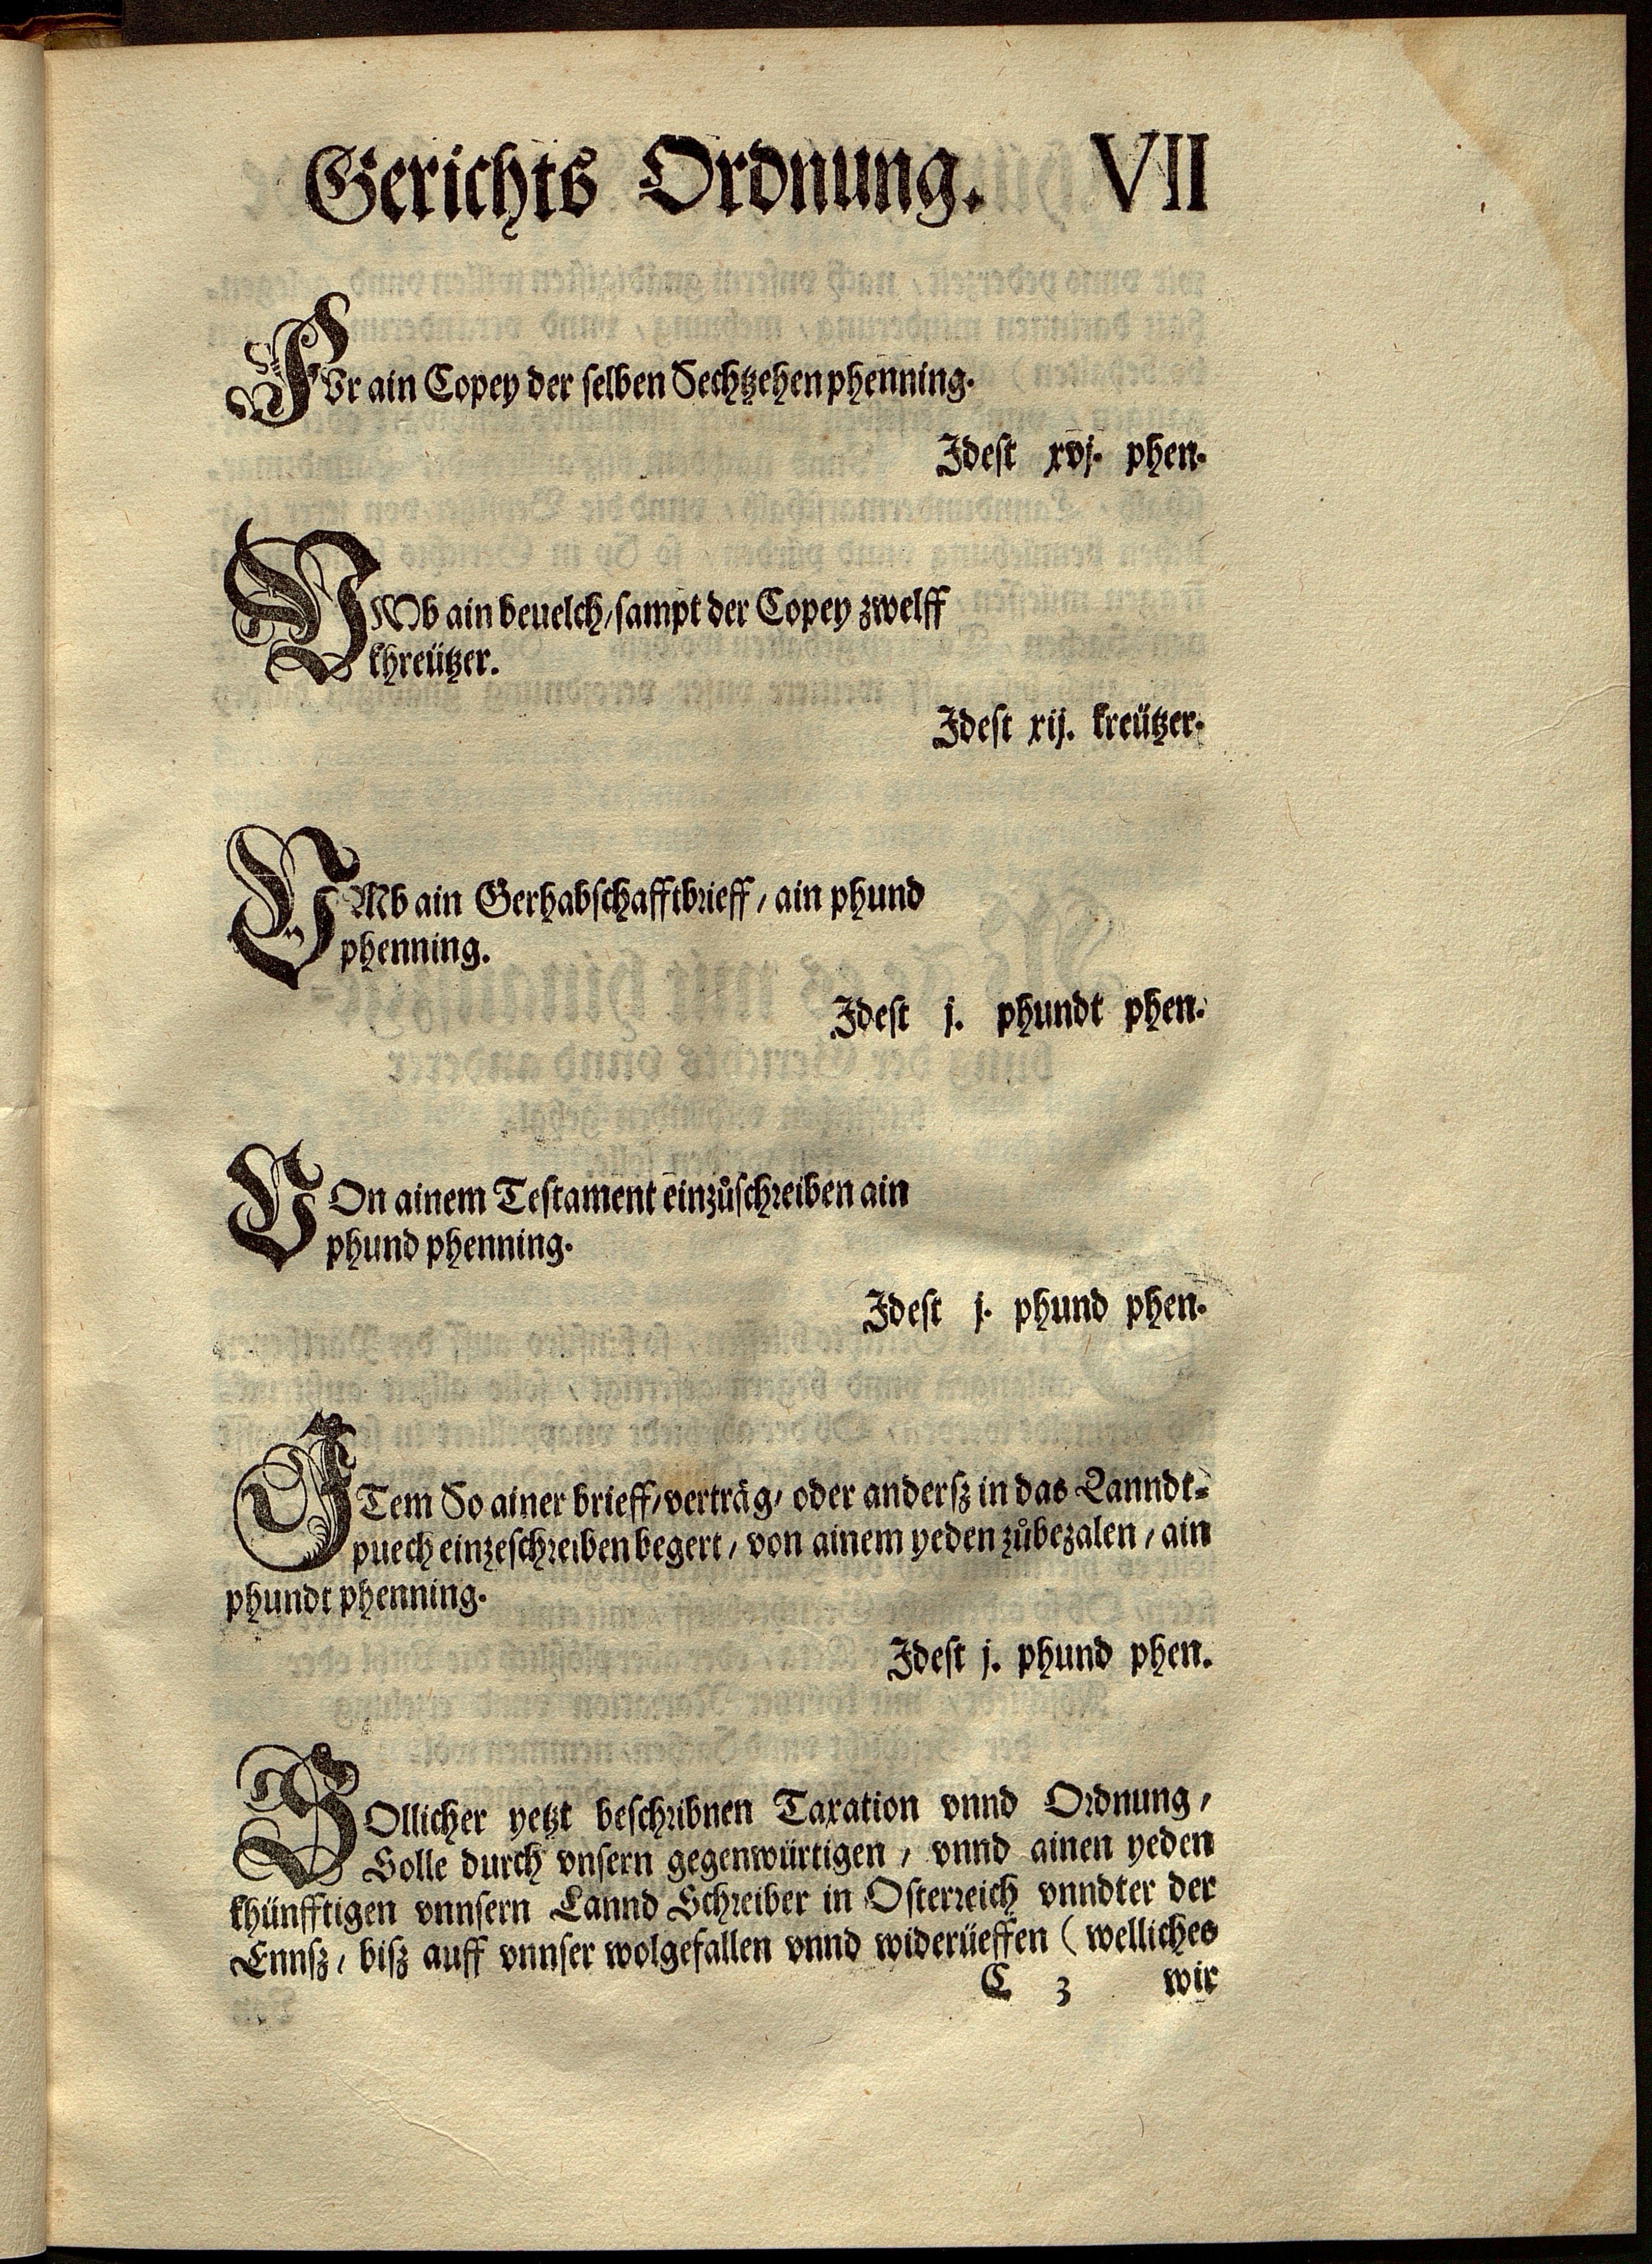 Gerichts Ordnung. VII
FVr ain Copey der selben Sechtzehen phenning.
Idest xvj. phen.
VMb ain beuelch/ sampt der Copey zwelff
khreützer.
Idest xij. kreützer.
VMb ain Gerhabschafftbrieff / ain phund
phenning.
Idest j. phundt phen.
VOn ainem Testament einzůschreiben ain
phund phenning.
Idest j. phund phen.
ITem So ainer brieff/ verträg/ oder andersz in das Lanndt-
puech einzeschreiben begert / von ainem yeden zůbezalen / ain
phundt phenning.
Idest j. phund phen.
SOllicher yetzt beschribnen Taxation vnnd Ordnung /
Solle durch vnsern gegenwürtigen / vnnd ainen yeden
khünfftigen vnnsern Lannd Schreiber in Osterreich vnndter der
Ennsz / bisz auff vnnser wolgefallen vnnd widerüeffen ( welliches
C 3 wir